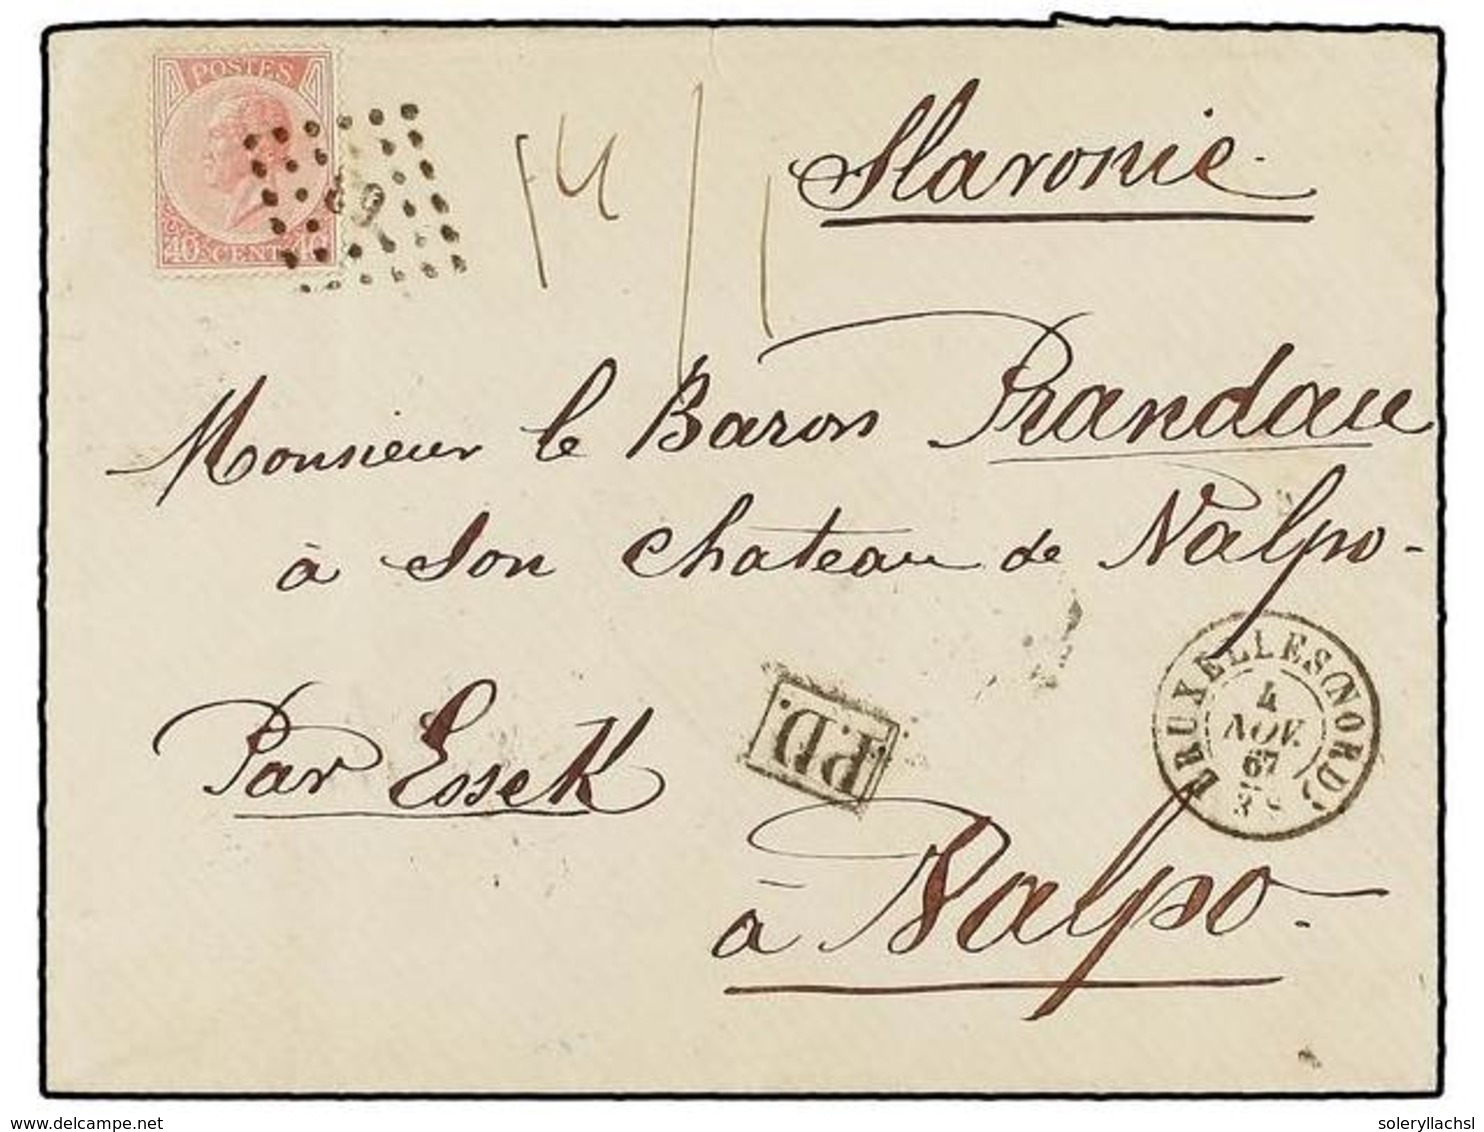 POSTES
40 CENT. 40
14
Slavonie.
Monsieur le Baron Prandau
à son chateau de Valpo-
Par Essek
P.D.
BRUXELLES (NORD)
4
NOV.
67
3 S
à Valpo.
www.delcampe.net
soleryllachsl